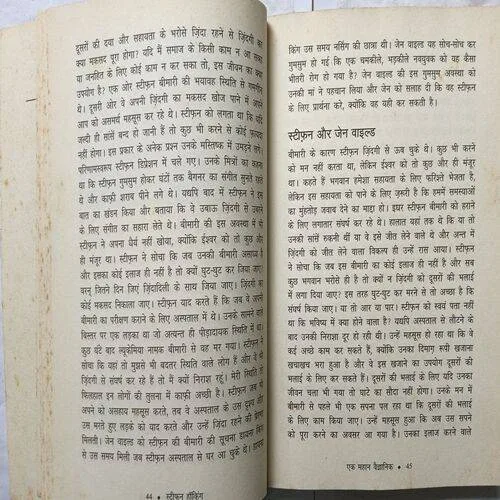 दूसरों की दया और सहायता के भरोसे ज़िंदा रहने से ज़िंदगी का
क्या मकसद पूरा होगा? यदि मैं समाज के किसी काम न आ सका
या जनहित के लिए कोई काम न कर सका तो, इस जीवन का क्या
उपयोग है? एक ओर स्टीफ़न बीमारी की भयावह स्थिति से गमगीन
थे। दूसरी ओर वे अपनी ज़िंदगी का मकसद खोज पाने में अपने
आप को असमर्थ महसूस कर रहे थे। स्टीफ़न को लगता था कि यदि
जल्दी ही सांसें बन्द हो जानी हैं तो कुछ भी करने से कोई फ़ायदा
नहीं होगा। इस प्रकार के अनेक प्रश्न उनके मस्तिष्क में उमड़ने लगे।
परिणामस्वरूप स्टीफ़न डिप्रेशन में चले गए। उनके मित्रों का कहना
था कि स्टीफ़न गुमसुम होकर घंटों तक वैगनर का संगीत सुनते रहते
थे और काफ़ी शराब पीने लगे थे। यद्यपि बाद में स्टीफ़न ने इस
बात का खंडन किया और बताया कि वे उबाऊ ज़िंदगी से उबरने
के लिए संगीत का सहारा लेते थे। बीमारी की इस अवस्था में भी
स्टीफ़न ने अपना धैर्य नहीं खोया, क्योंकि ईश्वर को तो कुछ और
ही मंजूर था। स्टीफ़न ने सोचा कि जब उनकी बीमारी असाध्य है
और इसका कोई इलाज ही नहीं है तो क्यों घुट-घुट कर जिया जाए।
वरन् जितने दिन जिएं ज़िंदादिली के साथ जिया जाए। ज़िंदगी का
कोई मकसद निकाला जाए। स्टीफ़न याद करते हैं कि जब वे अपनी
बीमारी का परीक्षण कराने के लिए अस्पताल में थे। उनके सामने वाले
बिस्तर पर एक लड़का था जो अत्यन्त ही पीड़ादायक स्थिति में था।
कुछ घंटे बाद ल्यूकेमिया नामक बीमारी से वह मर गया। स्टीफ़न ने
सोचा कि यहां तो मुझसे भी बदतर स्थिति वाले लोग हैं और वे भी
ज़िंदगी से संघर्ष कर रहे हैं तो मैं क्यों निराश रहूँ। मेरी स्थिति तो
फिलहाल इन लोगों की तुलना में काफी अच्छी है। स्टीफ़न जब भी
अपने को असहाय महसूस करते, तब वे अस्पताल के उस दृश्य और
उस मरते हुए लड़के को याद करते और उन्हें ज़िंदा रहने की प्रेरणा
मिलती। जेन वाइल्ड को स्टीफ़न की बीमारी की सूचना डायना किंग
से उस समय मिली जब स्टीफ़न अस्पताल से घर आ चुके थे। डायना
44 • स्टीफ़न हॉकिंग
किंग उस समय नर्सिंग की छात्रा थी। जेन वाइल्ड यह सोच-सोच कर
गुमसुम हो गई कि एक चमकीले, भड़कीले नवयुवक को यह कैसा
भीतरी रोग हो गया है? जेन वाइल्ड की इस गुमसुम अवस्था को
उनकी मां ने पहचान लिया और जेन को सलाह दी कि वह स्टीफ़न
के लिए प्रार्थना करे, क्योंकि वह यही कर सकती है।
स्टीफ़न और जेन वाइल्ड
बीमारी के कारण स्टीफ़न ज़िंदगी से ऊब चुके थे। कुछ भी करने
को मन नहीं करता था, लेकिन ईश्वर को तो कुछ और ही मंजूर
था। कहते हैं भगवान हमेशा सहायता के लिए फरिश्ते भेजता है,
लेकिन इस सहायता को पाने के लिए ज़रूरी है कि हममें समस्याओं
का मुंहतोड़ जवाब देने का माद्दा हो। इधर बीमारी को हराने
के लिए लगातार संघर्ष कर रहे थे। हालात यहां तक थे कि या तो
उनकी सांसें रुकनी थीं या वे इसे जीत लेने वाले थे और अन्त में
ज़िंदगी को जीत लेने वाला विकल्प ही उन्हें रास आया। स्टीफ़न
ने सोचा कि जब इस बीमारी का कोई इलाज ही नहीं है और सब
कुछ भगवान भरोसे ही है तो क्यों न ज़िंदगी को दूसरों की भलाई
में लगा दिया जाए? इस तरह घुट-घुट कर मरने से तो अच्छा है कि
संघर्ष किया जाए। या तो आर या पार। स्टीफ़न को स्वयं पता नहीं
था कि भविष्य में क्या होने वाला है? यद्यपि अस्पताल से लौटने के
बाद उनकी निराशा दूर हो रही थी। उन्हें महसूस हो रहा था कि वे
कई अच्छे काम कर सकते हैं, क्योंकि उनका दिमाग़ रूपी खजाना
खचाखच भरा हुआ है। और वे इस खजाने का उपयोग दूसरों की
भलाई के लिए कर सकते हैं। दूसरों की भलाई के लिए यदि उनका
जीवन चला भी गया तो घाटे का सौदा नहीं होगा। उनके मन में
बीमारी से पहले भी एक सपना पल रहा था कि दूसरों की भलाई
के लिए काम किया जाए। उन्हें महसूस हुआ कि अब उस सपने
को पूरा करने का अवसर आ गया है। उनका इलाज करने वाले
एक महान वैज्ञानिक • 45